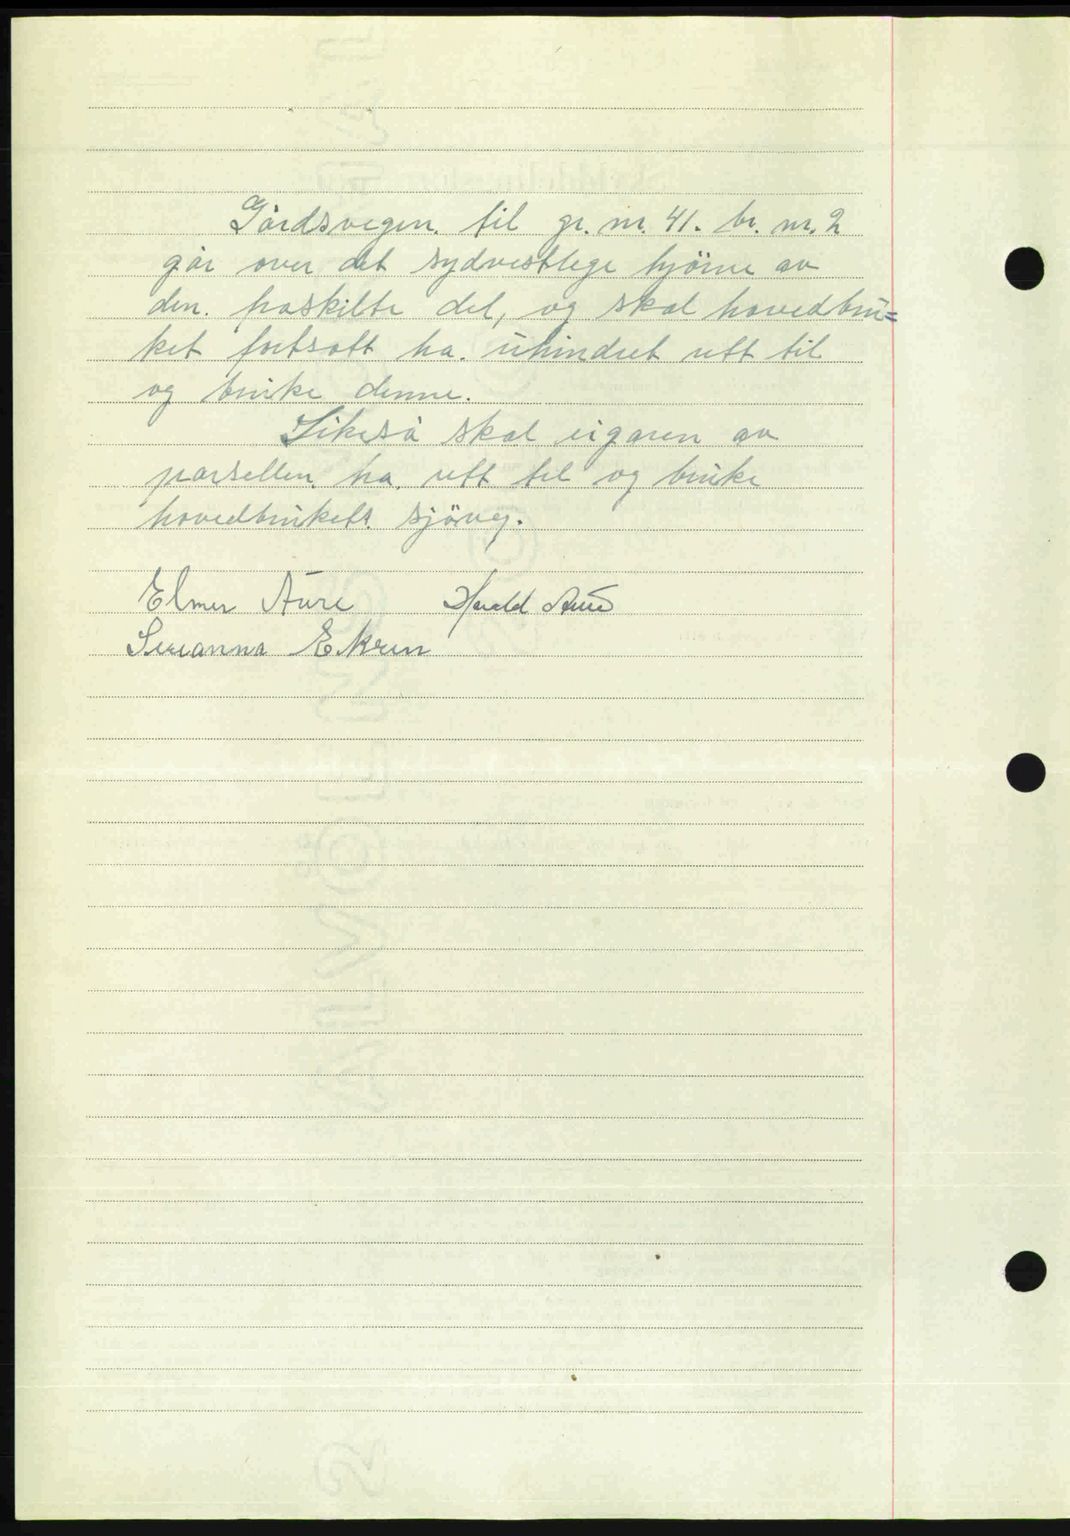 Gårdsvegen til gr. nr. 41. br. nr. 2
går over det sydvestlege hjörne av
den fraskilte del, og skal hovedbrü=
ket fortsatt ha ühindret rett til
og brüke denne.
Likeså skal eigaren av
parsellen ha rett til og brüke
hovedbrükets sjöveg.
Elmer Aüre Harald Aure
Ekren